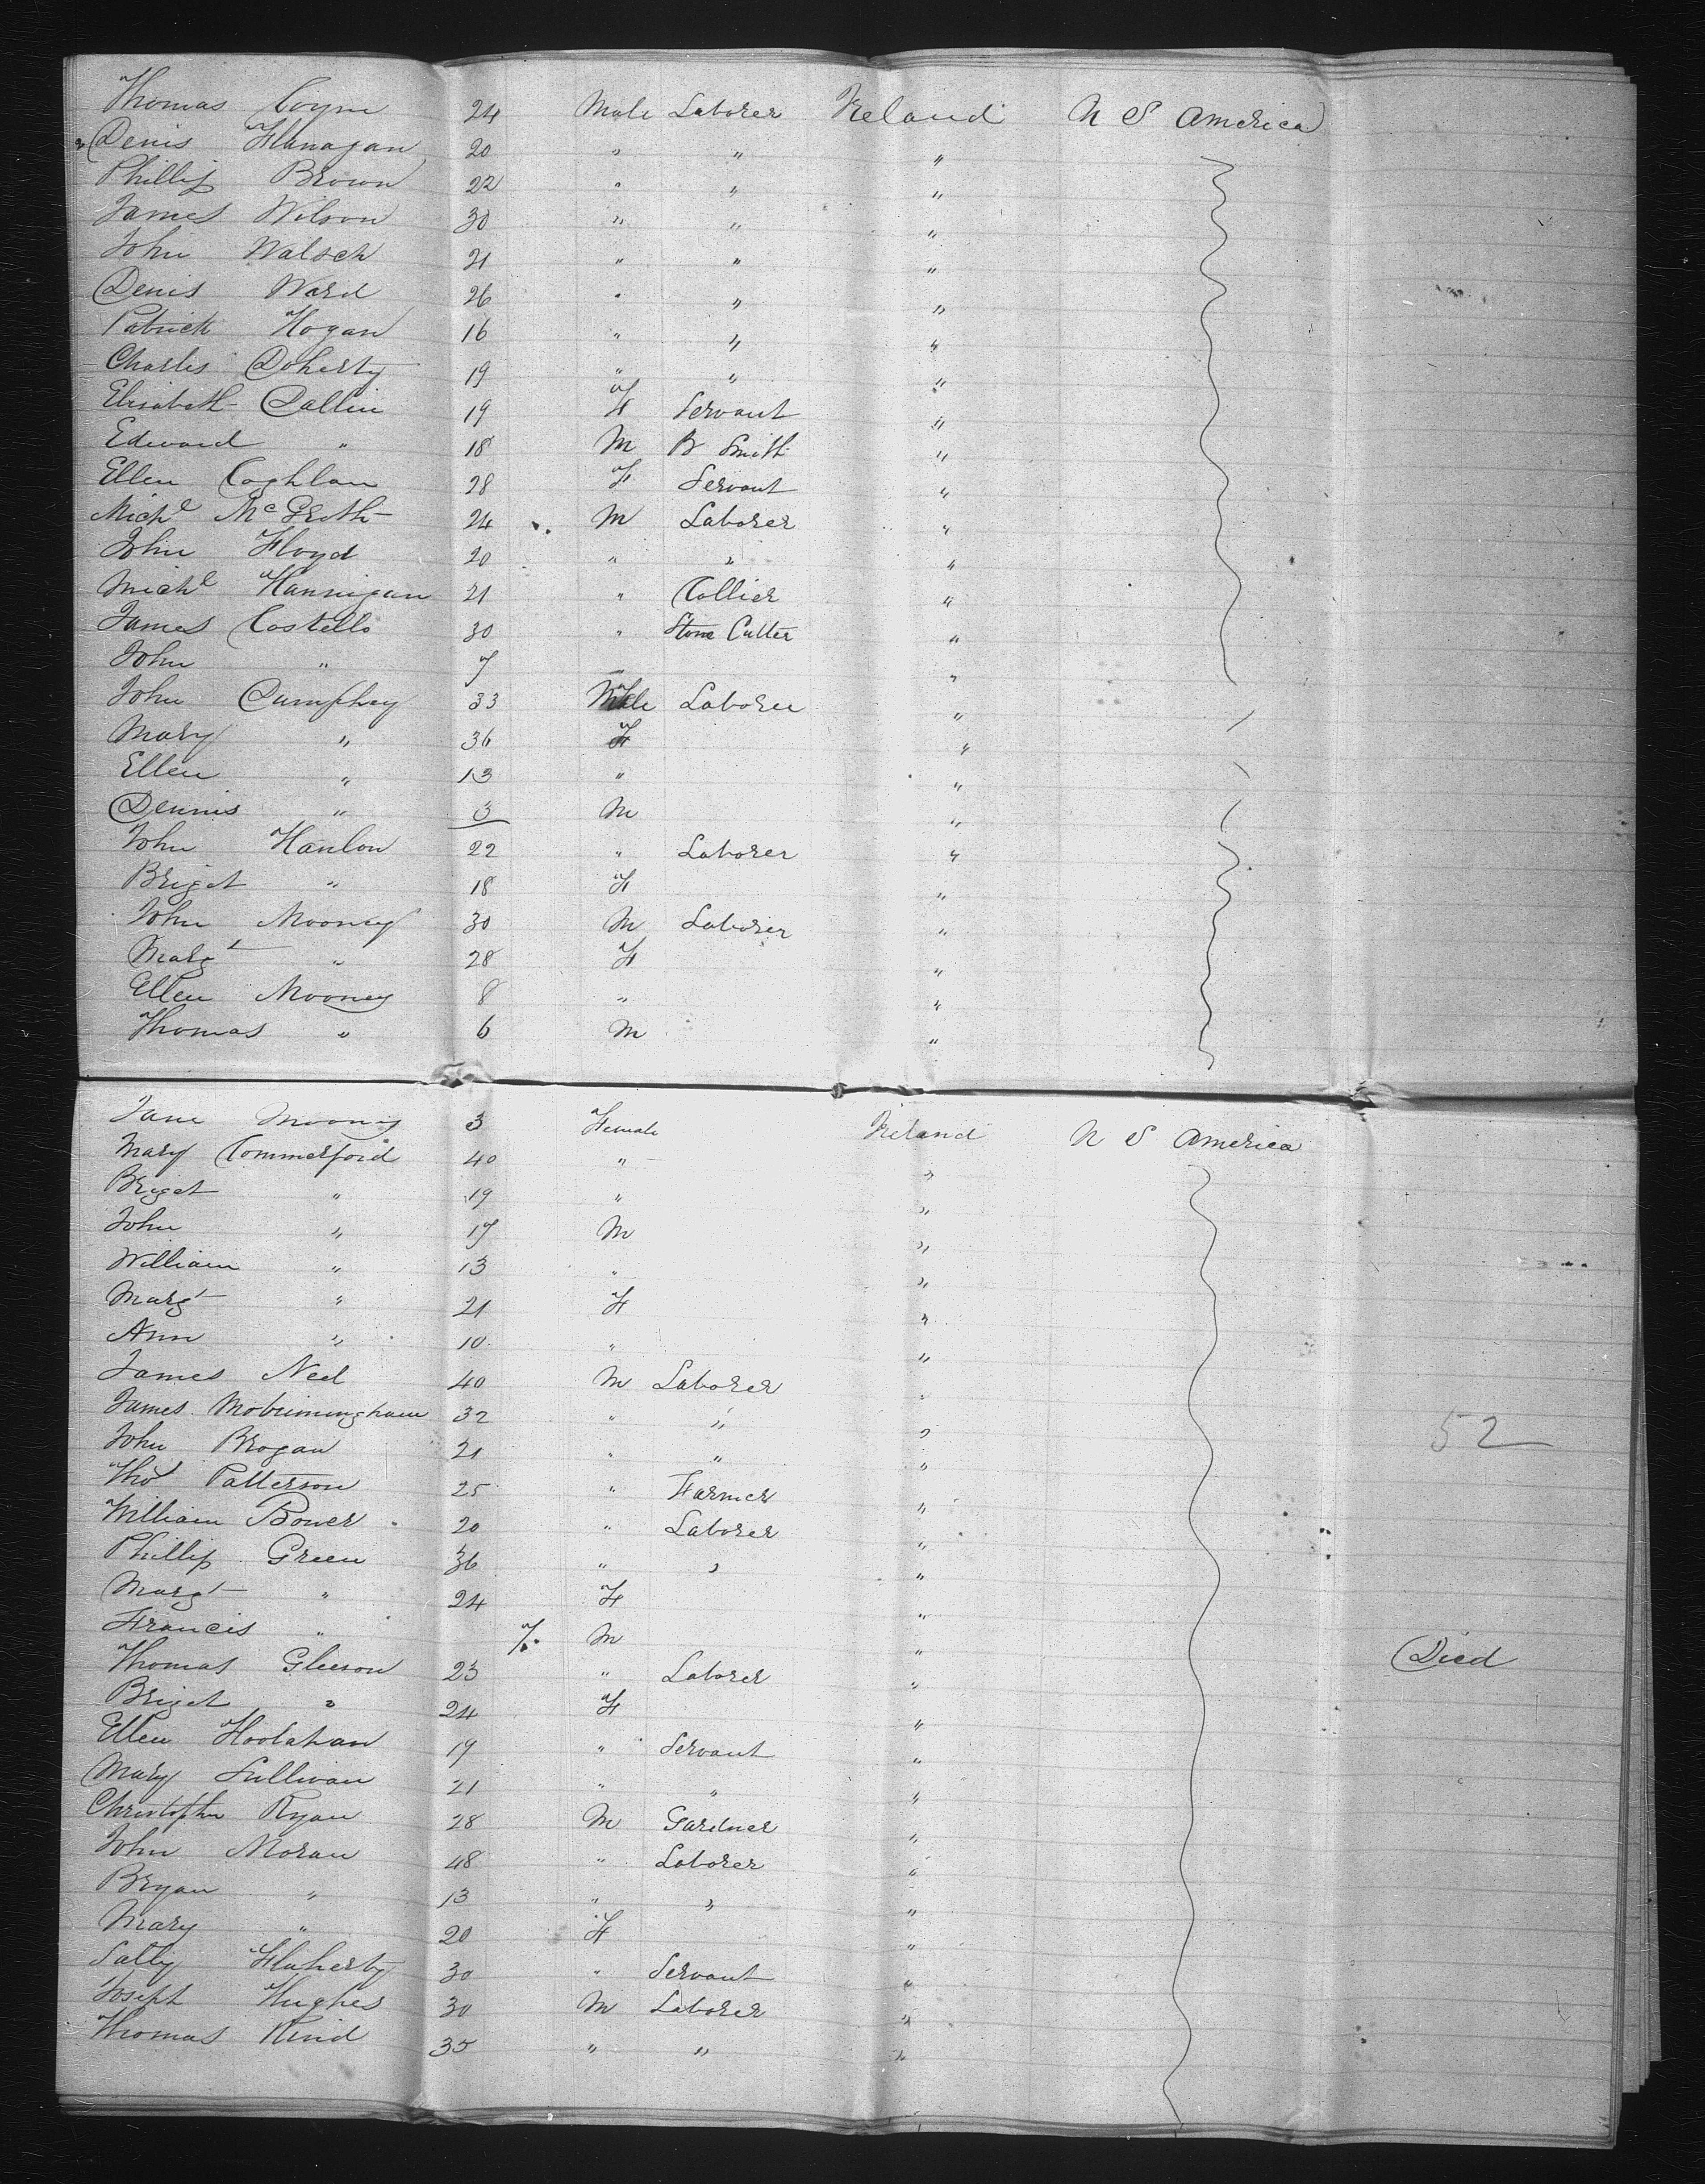 Thomas Coyne 24 Male Laborer Ireland U S America
Denis Flanagan 20 " " "
Phillip Brown 22 " " "
James Wilson 30 " " "
John Walsch 21 " " "
Denis Ward 26 " " "
Patrick Hogan 16 " " "
Charles Doherty 19 " " "
Elisabeth Callin 19 F Servant "
Edward " 18 M B Smith "
Ellen Coghlan 28 F Servant "
Michl McGrath 24 M Laborer "
John Floyd 20 " " "
Michl Hannigan 21 " Collier "
James Costello 30 " Stone Cutter "
John " 7 "
John Dumphey 33 Male Laborer "
Mary " 36 F "
Ellen " 13 " "
Dennis " 3 M "
John Hanlon 22 " Laborer "
Briget " 18 F "
John Mooney 30 M Laborer "
Margt " 28 F "
Ellen Mooney 8 " "
Thomas " 6 M "
Jane Mooney 3 Female Ireland U S America
Mary Commerford 40 " "
Briget " 19 " "
John " 17 M "
William " 13 " "
Margt " 21 F "
Ann " 10 " "
James Neel 40 M Laborer "
James Mobrimingham 32 " " "
John Brogan 21 " " " 52
Thos Patterson 25 " Farmer "
William Bower 20 " Laborer "
Phillip Green 36 " " "
Margt " 24 F "
Francis " M " Died
Thomas Gleeson 23 " Laborer "
Briget " 24 F "
Ellen Hoolahan 19 " Servant "
Mary Sullivan 21 " " "
Christopher Ryan 28 M Gardner "
John Moran 48 " Laborer "
Bryan " 13 " " "
Mary " 20 F "
Sally Flaherty 30 " Servant "
Joseph Hughes 30 M Laborer "
Thomas Kind 35 " " "